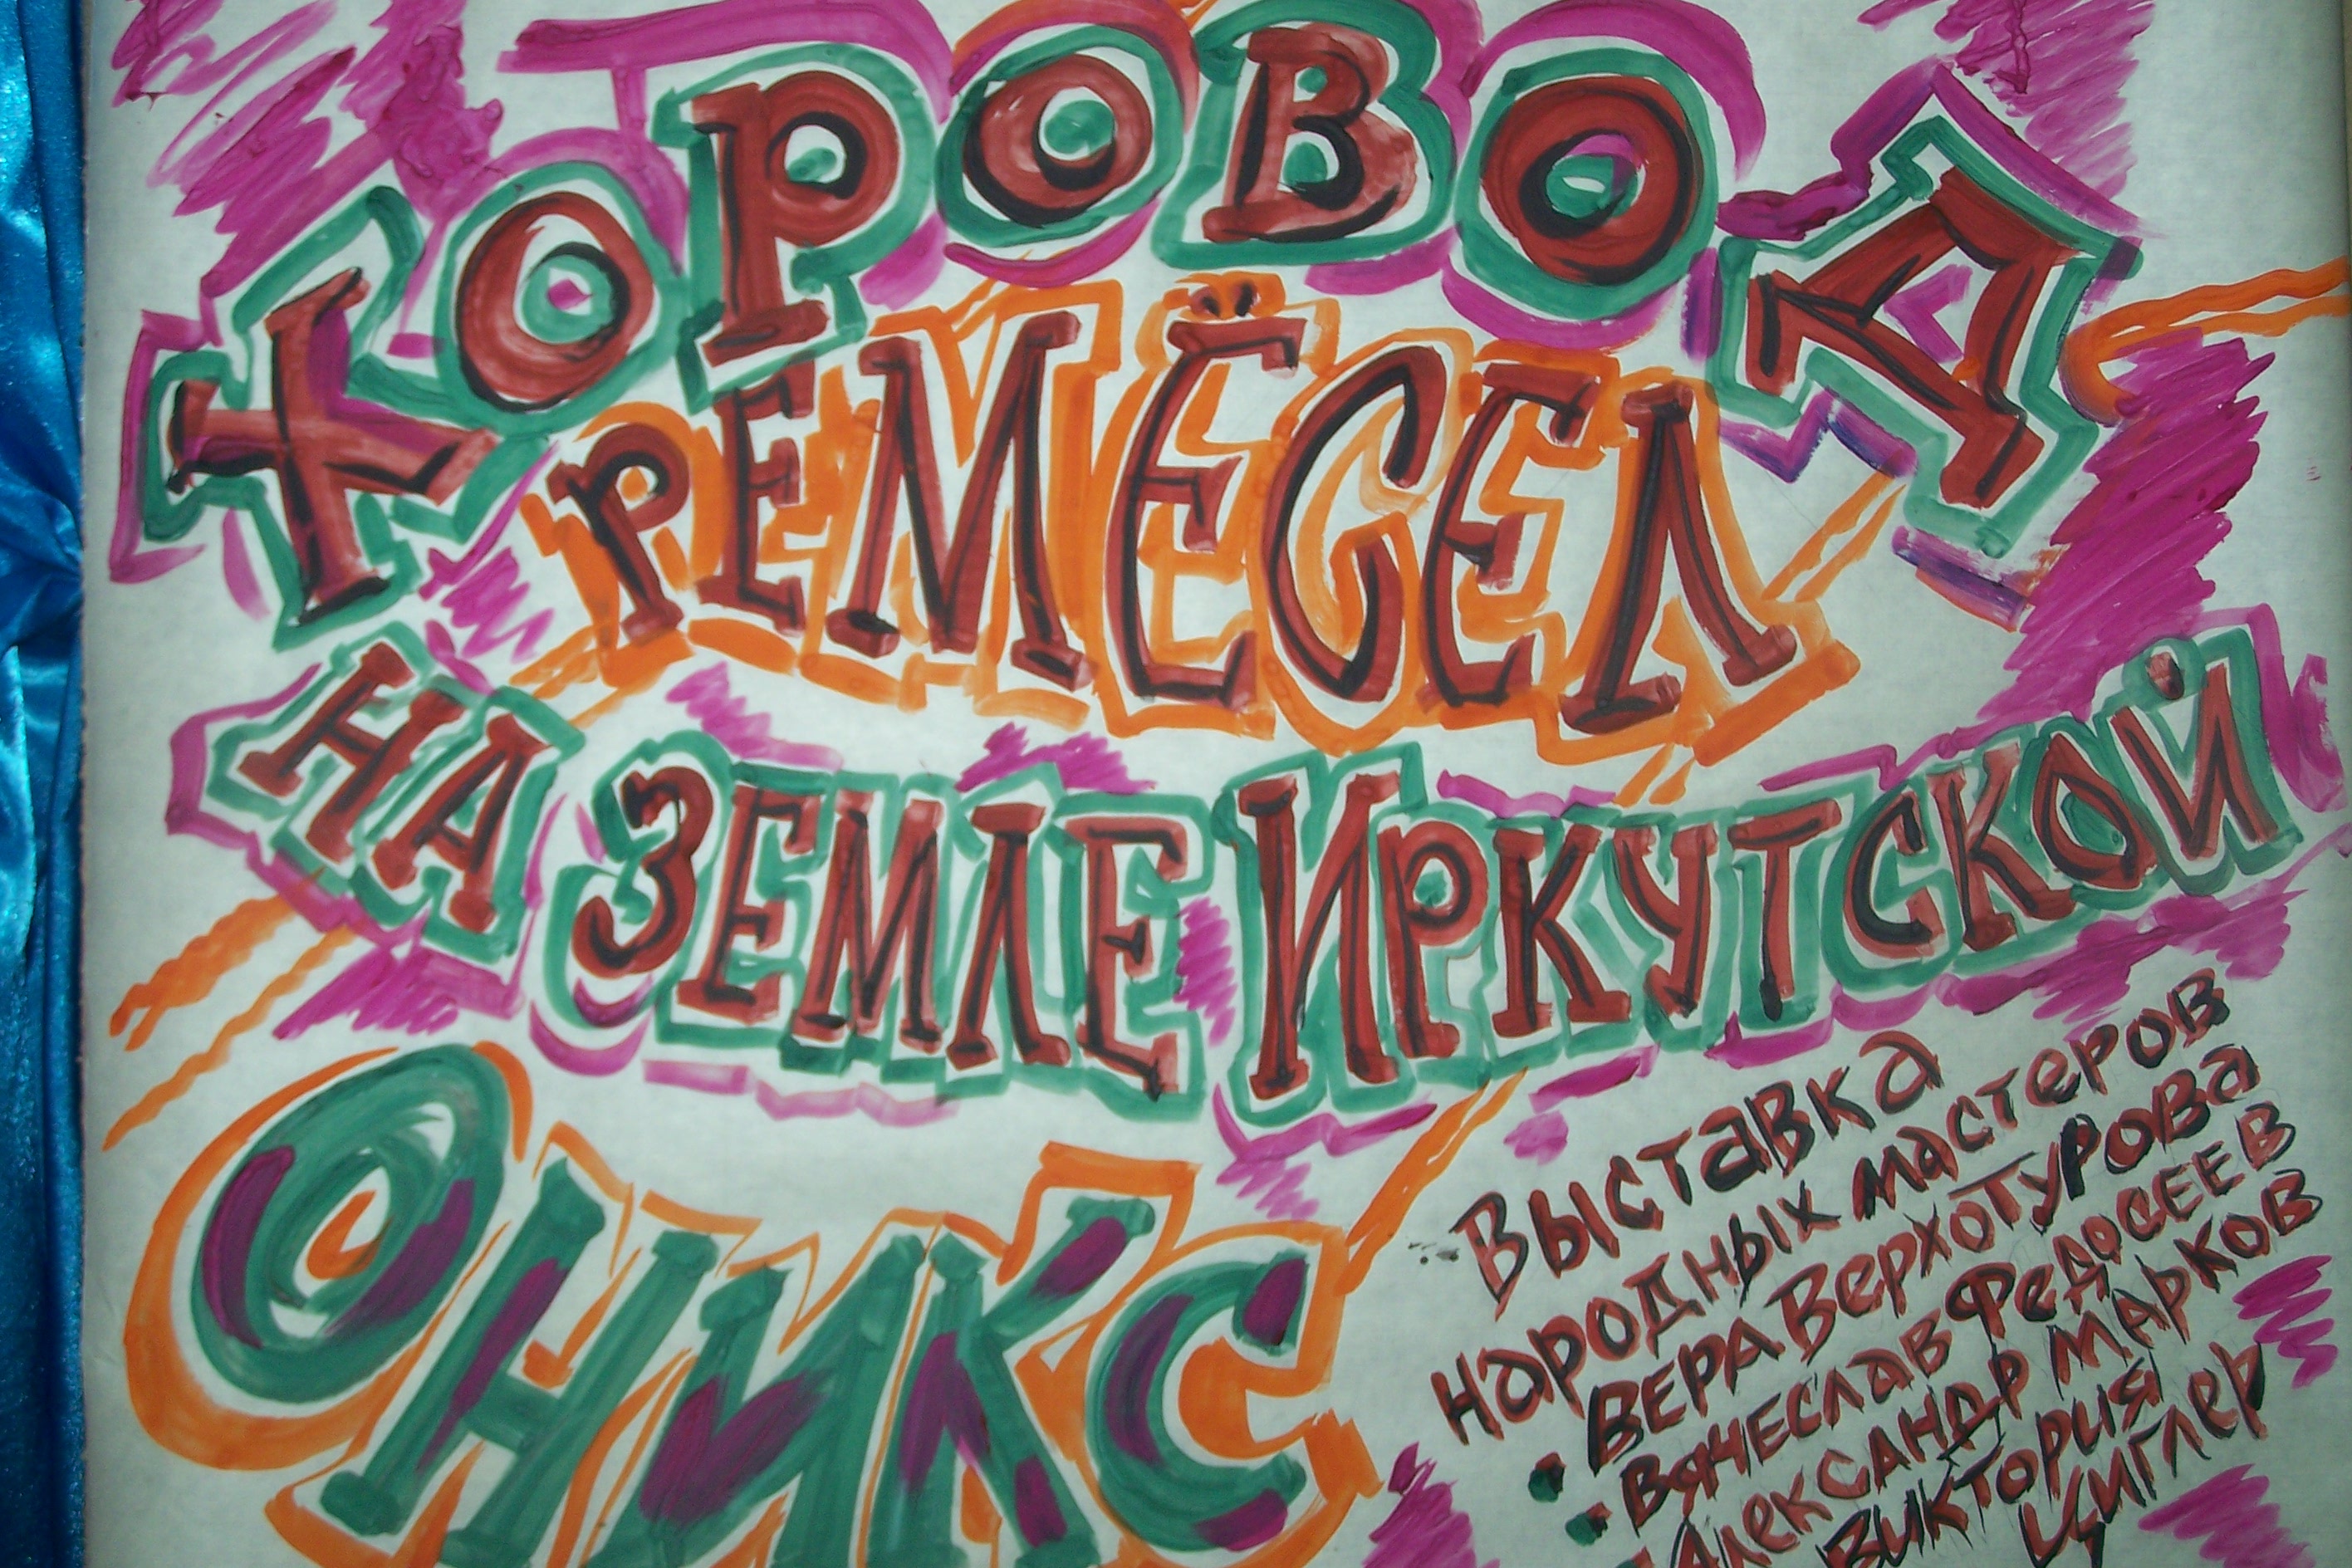 ХОРОВОД
РЕМЁСЕЛ
НА ЗЕМЛЕ ИРКУТСКОЙ
ОНИКС
Выставка
народных мастеров
• Вера Верхотурова
• Вячеслав Федосеев
• Александр Марков
Виктория
Циглер